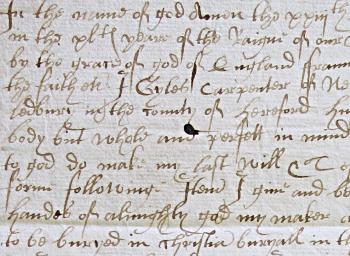 In the name of god Amen the xxiiith
in the xlth yeare of the Raigne of our
by the grace of god of England fraun
the faith etc I Gyles Carpenter of
Ledbury in the county of hereford
body but whole and perfett in mind
to god do make my last will & T
forme followinge Item I give and be
handes of almighty god my maker
to be buryed in Christian buryall in th